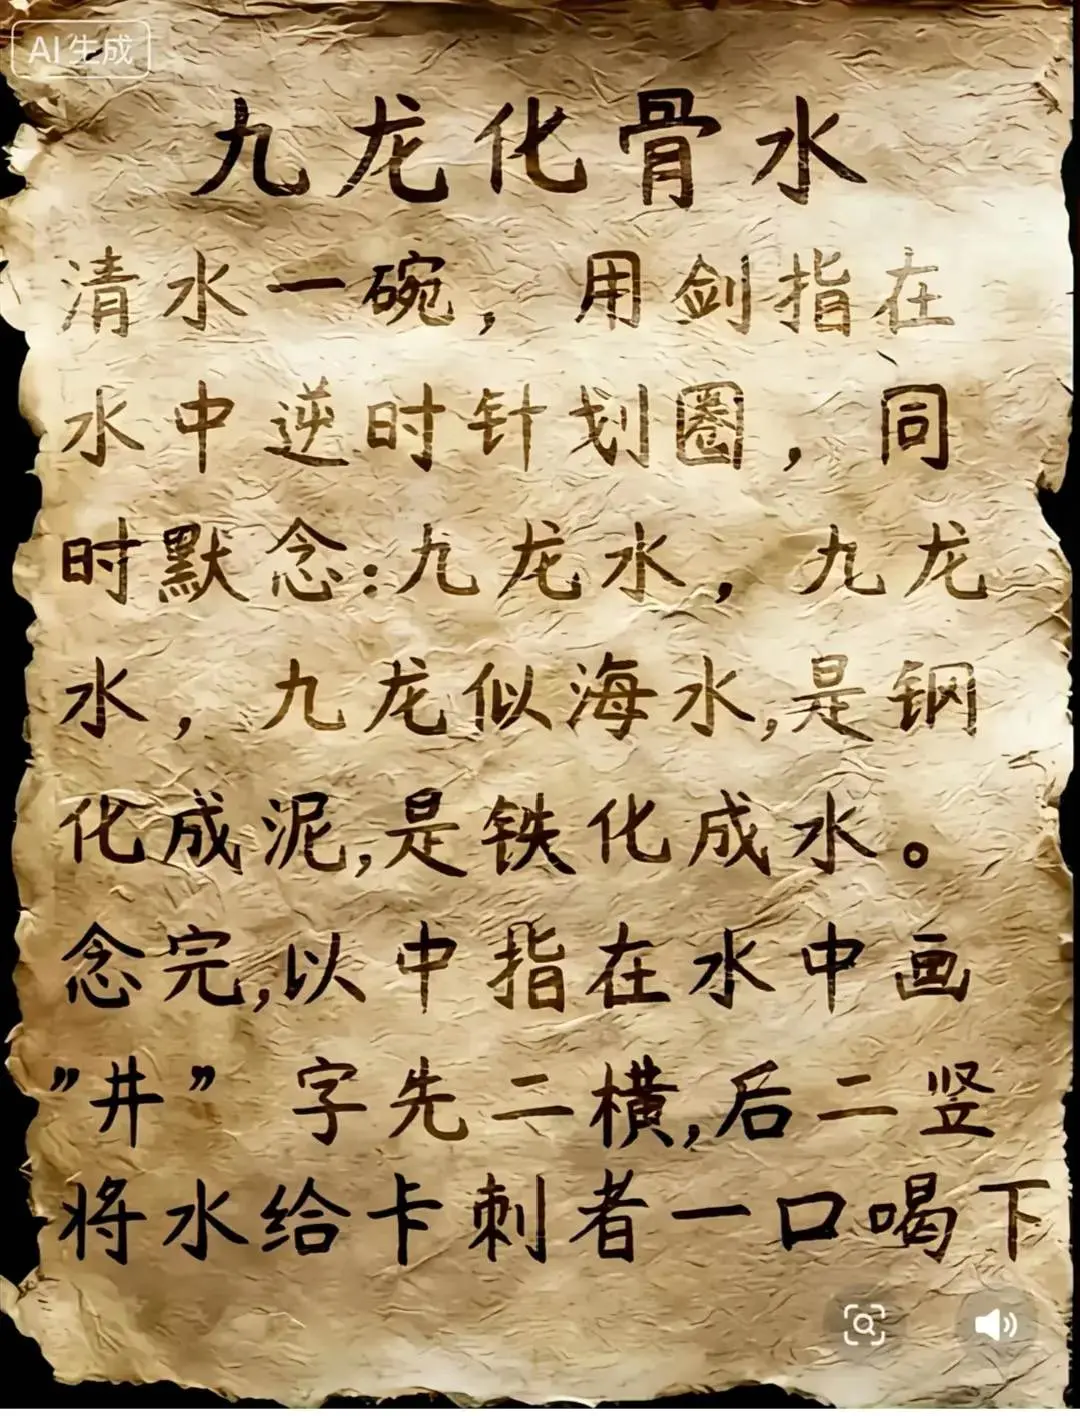 AI生成
九龙化骨水
清水一碗，用剑指在
水中逆时针划圈，同
时默念:九龙水，九龙
水，九龙似海水,是钢
化成泥,是铁化成水。
念完,以中指在水中画
"井"字先二横,后二竖
将水给卡刺者一口喝下